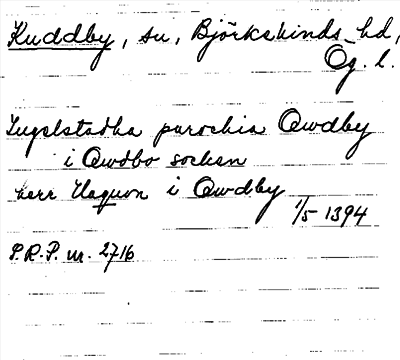 Kuddby, sn, Björkekinds hd,
Ög. l.
Ingelstadha parochia Qwdby
i Qwdbo soсken
herr Haquon i Qwdby
1/5 1394
S.R.P. nr. 2716